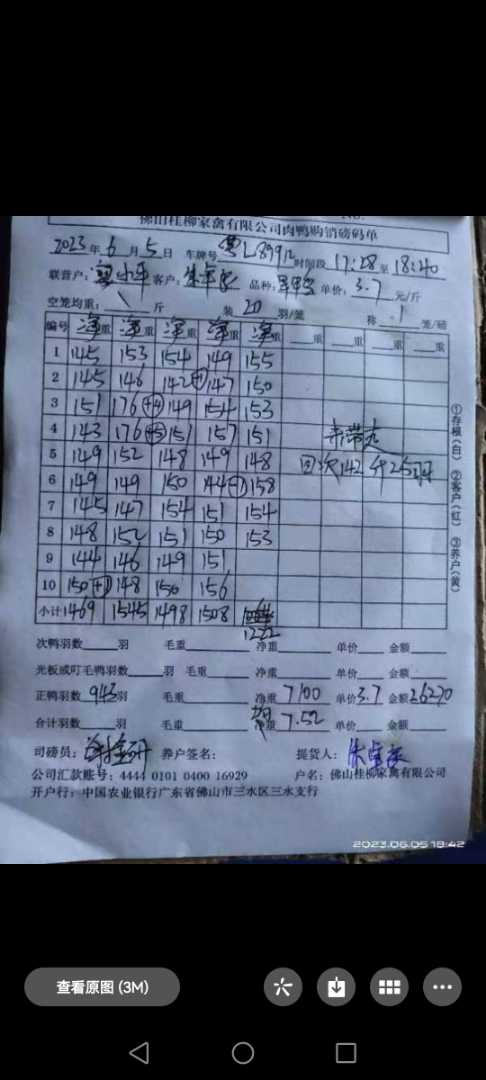 佛山桂柳家禽有限公司肉鸭购销磅码单
2023年6月5日 车牌号 时间段 17:28至18:40
联营户: 小平 客户: 品种: 单价: 3.7 元/斤
空笼均重: \ 斤 装 20 羽/笼 称 1 笼/磅
编号 净重 净重 净重 净重 净重 重 重 重 重
1 145 153 154 149 155
2 145 146 142+1 147 150
3 151 176+4 149 154 153
4 143 176+5 151 157 151
5 149 152 148 149 148
6 149 149 150 144-1 158
回次142斤25羽
7 145 147 154 151 154
8 148 152 151 150 153
9 144 146 149 151
10 150+1 148 150 156
小计 1469 1545 1498 1508
1222
①存根(白) ②客户(红) ③养户(黄)
次鸭羽数 羽 毛重 净重 单价 金额
光板或叮毛鸭羽数 羽 毛重 净重 单价 金额
正鸭羽数 943 羽 毛重 净重 7100 单价 3.7 金额 26270
合计羽数 羽 毛重 7.52 单价 金额
司磅员: 养户签名: 提货人:
公司汇款账号: 4444 0101 0400 16929 户名: 佛山桂柳家禽有限公司
开户行: 中国农业银行广东省佛山市三水区三水支行
2023.06.05 18:42
查看原图 (3M)